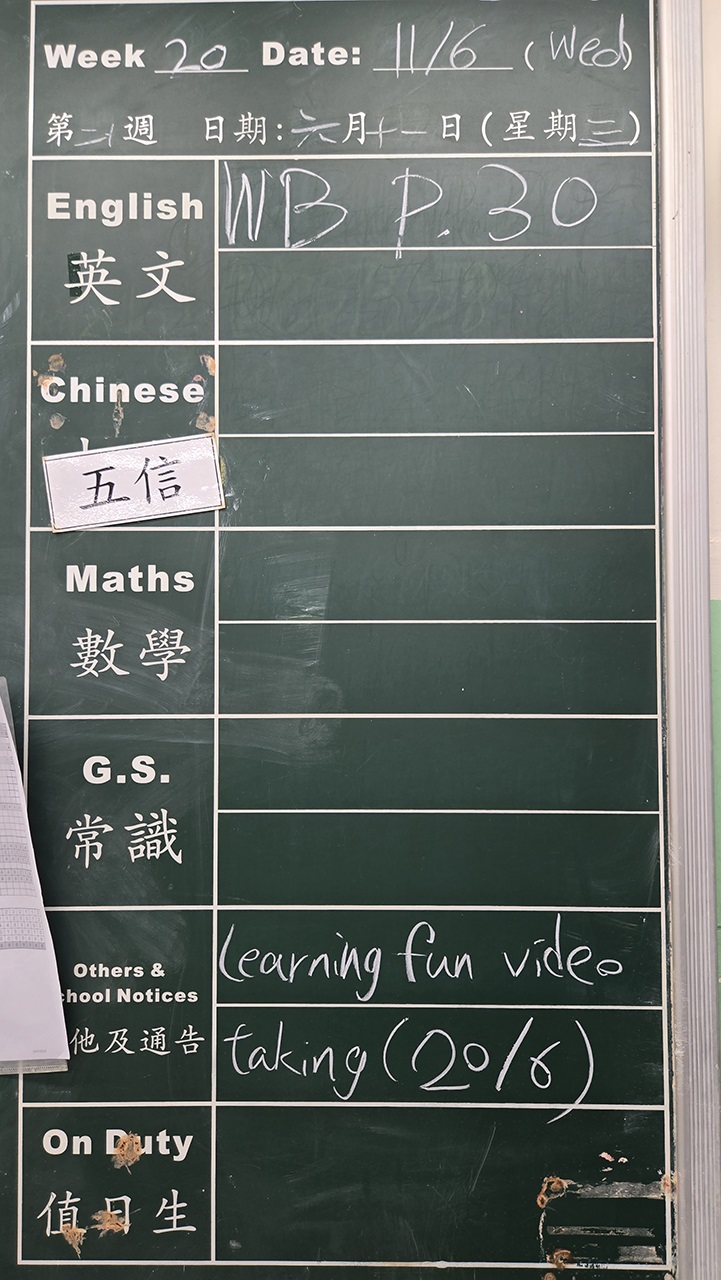 Week 20 Date: 11/6 (Wed)
第二十週 日期:六月十一日(星期三)
English WB P. 30
英文
Chinese
五信
Maths
數學
G.S.
常識
Others & Learning fun video
hool Notices
他及通告 taking (20/6)
On Duty
值日生